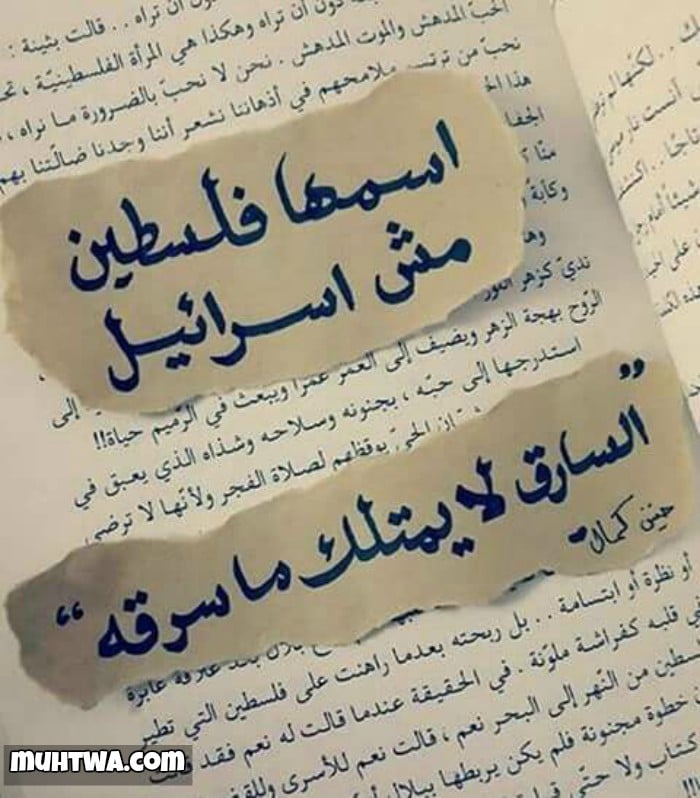 ون أن تراه .. قالت بثينة :
دون أن تراه وهكذا هي المرأة الفلسطينيّة ،
الحبّ المدهش والموت المدهش . نحن لا نحبّ بالضرورة ما نراه ،
نحبّ من ترتسم ملامحهم في أذهاننا نشعر أننا وجدنا ضالّتنا بهم
هذا
منّا
وكآبة
اسمها فلسطين
مش اسرائيل
نديّ كزهر
الرّوح بهجة الزهر ويضيف إلى العمر عمراً ويبعث في الرّميم حياة!!
إلى
استدرجها إلى حبّه ، بجنونه وسلاحه وشذاه الذي يعبق في
الحيّ يوقظهم لصلاة الفجر ولأنّها لا ترضى
"السارق لا يمتلك ما سرقه"
حنين كمال
علاقة عابرة
أو نظرة أو ابتسامة .. بل ربحته بعدما راهنت على فلسطين التي تطير
في قلبه كفراشة ملوّنة . في الحقيقة عندما قالت له نعم فقد
فلسطين من النّهر إلى البحر نعم ، قالت نعم للأسرى
خطوة مجنونة فلم يكن يربطها ببلال
كتاب ولا حتّى
MUHTWA.COM